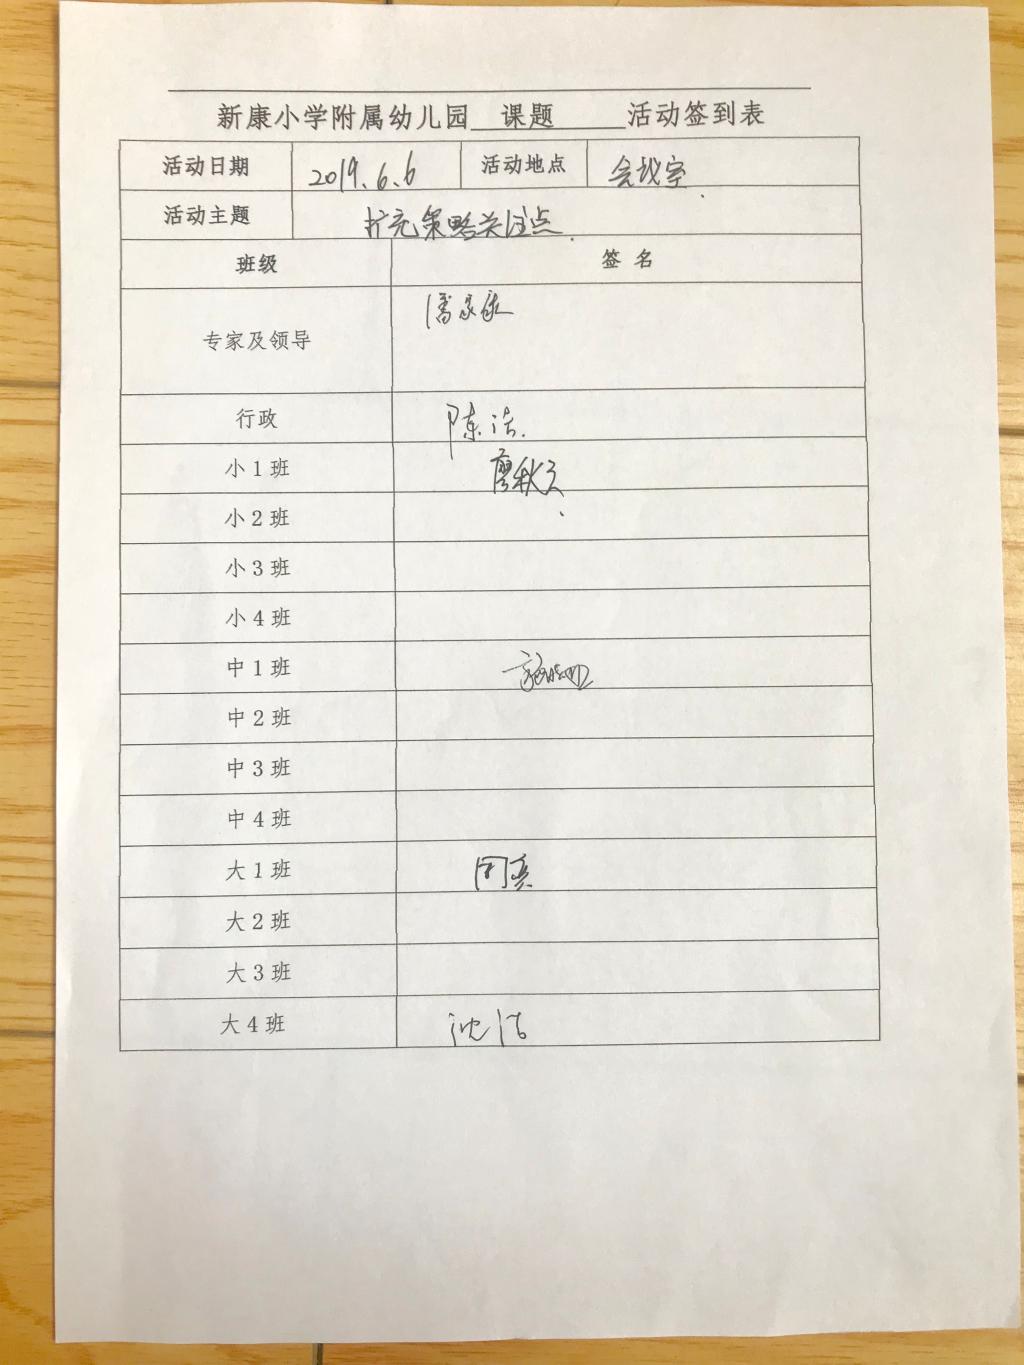 新康小学附属幼儿园 课题 活动签到表
活动日期 2019.6.6 活动地点 会议室
活动主题 扩充策略关注点.
班级 签 名
专家及领导 潘家康
行政 陈洁.
小1班 廖秋
小2班
小3班
小4班
中1班
中2班
中3班
中4班
大1班 周
大2班
大3班
大4班 沈洁